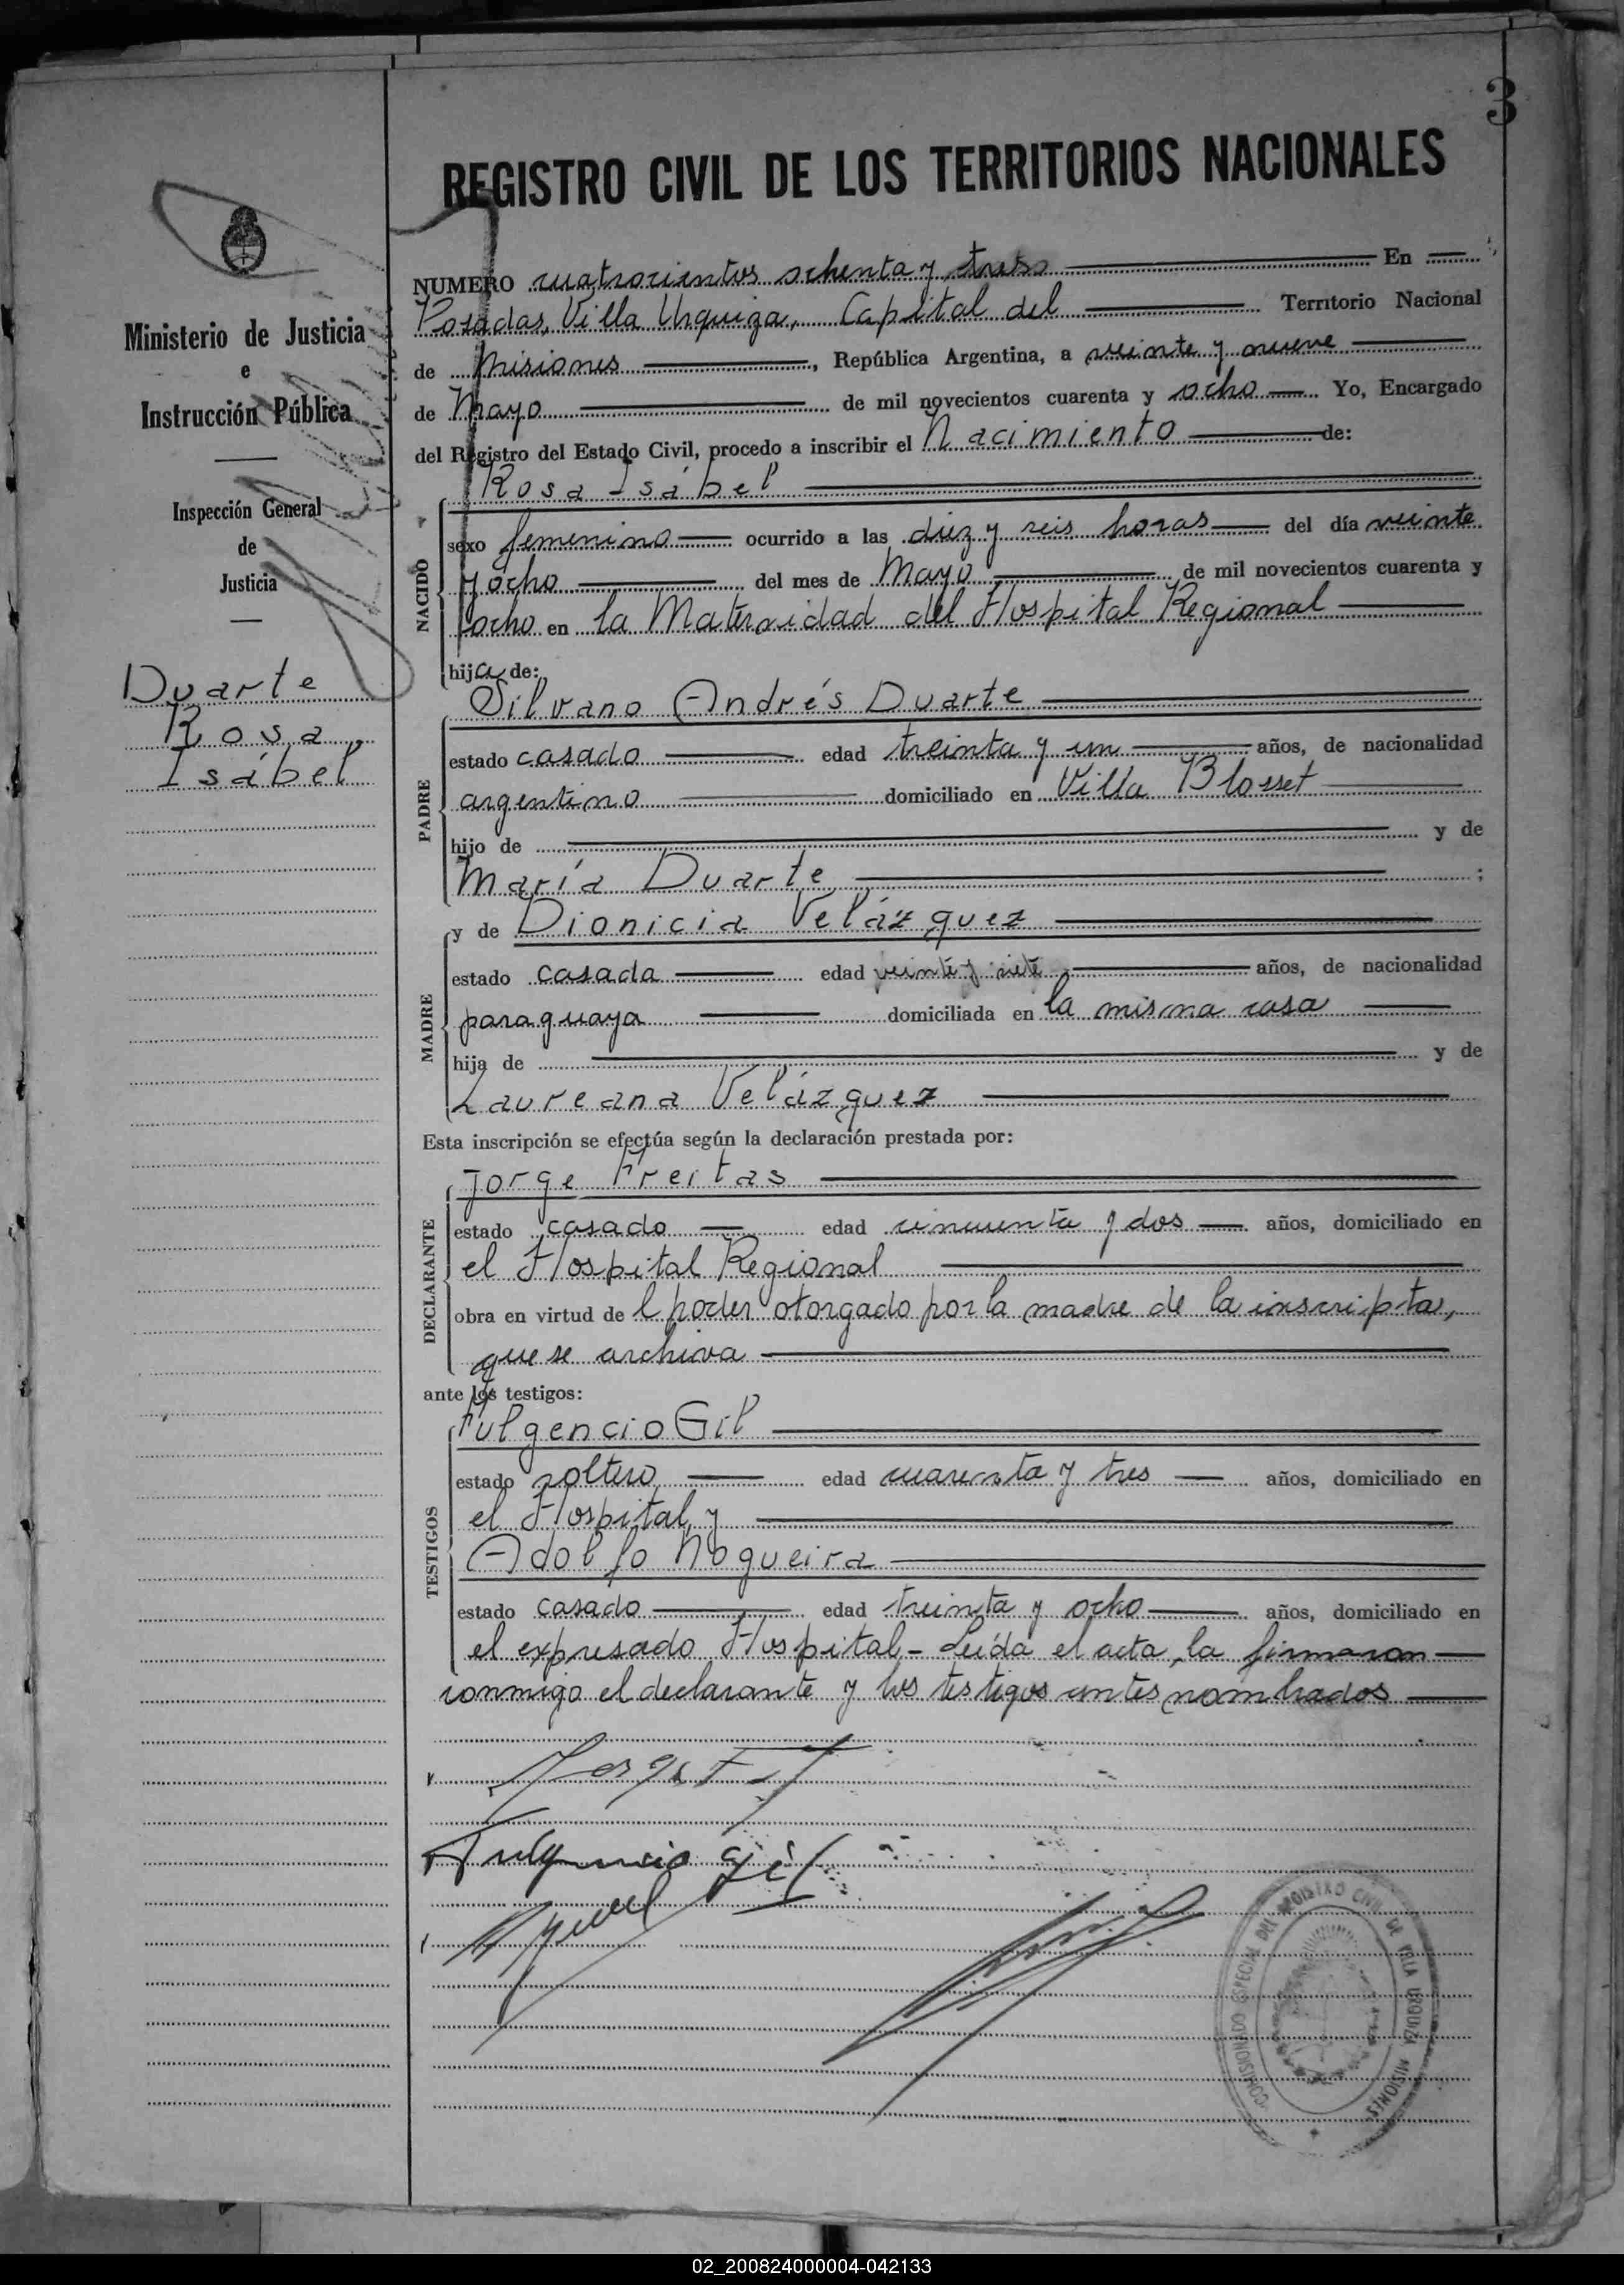 3
REGISTRO CIVIL DE LOS TERRITORIOS NACIONALES
Ministerio de Justicia
e
Instrucción Pública
Inspección General
de
Justicia
Duarte
Rosa
Isábel
NUMERO cuatrocientos ochenta y tres En
Posadas, Villa Urquiza, Capital del Territorio Nacional
de Misiones, República Argentina, a veinte y nueve
de Mayo de mil novecientos cuarenta y ocho Yo, Encargado
del Registro del Estado Civil, procedo a inscribir el Nacimiento de:
NACIDO
Rosa Isábel
sexo femenino ocurrido a las diez y seis horas del día veinte
y ocho del mes de Mayo de mil novecientos cuarenta y
ocho en la Maternidad del Hospital Regional
hija de:
PADRE
Silvano Andrés Duarte
estado casado edad treinta y un años, de nacionalidad
argentino domiciliado en Villa Blosset
hijo de y de
María Duarte ;
MADRE
y de Dionicia Velázquez
estado casada edad veinte y siete años, de nacionalidad
paraguaya domiciliada en la misma casa
hija de y de
Laureana Velázquez
Esta inscripción se efectúa según la declaración prestada por:
DECLARANTE
Jorge Freitas
estado casado edad cincuenta y dos años, domiciliado en
el Hospital Regional
obra en virtud de l poder otorgado por la madre de la inscripta,
que se archiva
ante los testigos:
TESTIGOS
Fulgencio Gil
estado soltero edad cuarenta y tres años, domiciliado en
el Hospital y
Adolfo Nogueira
estado casado edad treinta y ocho años, domiciliado en
el expresado Hospital - Leída el acta, la firmaron
conmigo el declarante y los testigos antes nombrados
Fulgencio Gil
COMISIONADO ESPECIAL DEL REGISTRO CIVIL DE VILLA URQUIZA MISIONES
02_200824000004-042133